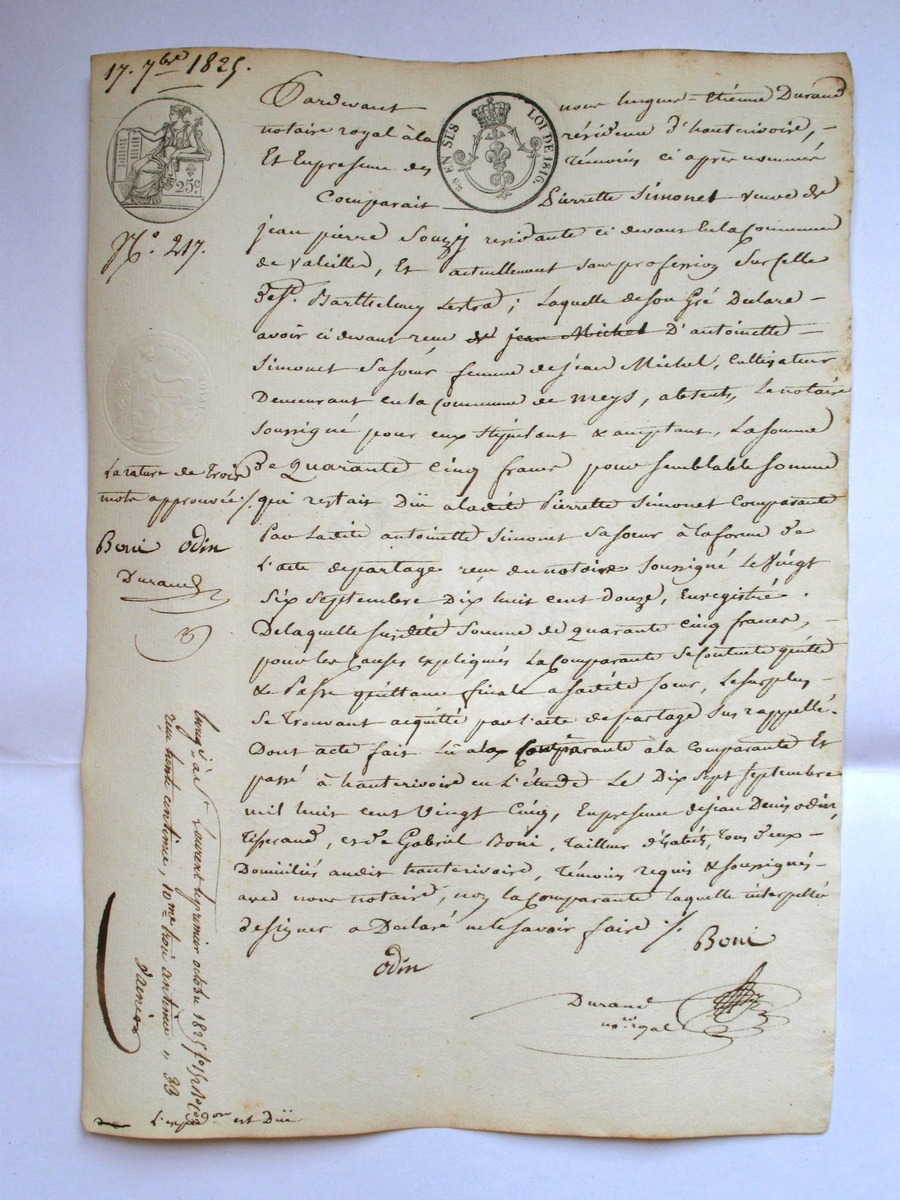 17. 7bre 1825.
25c
25 EN SUS LOI DE 1816.
No. 217.
Pardevant nous hugues-etienne Durand
notaire royal à la résidence d'hauterivoire,
Et En presence des témoins ci après nommés
Comparait Pierrette Simonet veuve de
jean pierre Souzy residante ci devant En la Commune
de Valeille, Et actuellement sans profession sur celle
de St. Barthelemy Lestra; Laquelle de son Gré Declare
avoir ci devant recu de jean Michel D'antoinette
Simonet Sa soeur femme de jean Michel, Cultivateur
Demeurant en la Commune de meys, absents, Le notaire
soussigné pour eux stipulant & acceptant, La somme
de Quarante Cinq francs pour semblable somme
qui restait Dûë à ladite Pierrette Simonet Comparante
Par Ladite antoinette Simonet sa soeur à la forme de
L'acte de partage recu du notaire soussigné Le Vingt
six septembre Dix huit cent Douze, Enregistré.
De laquelle susdite Somme de quarante Cinq francs,
pour les Causes expliqués La Comparante se Contente quitte
& Passe quittance finale a sadite soeur, Le surplus
se trouvant acquitté par L'acte de partage sus rappellé.
Dont acte fait Lu à la Comparante à la Comparante Et
passé à hauterivoire en L'étude Le Dix sept septembre
mil huit cent Vingt Cinq, En presence de jean Denis odin
Tisserand, et de Gabriel Boni, Tailleur d'habits, Tous Deux
Domiciliés audit hauterivoire, témoins requis & soussignés
avec nous notaire, non la Comparante laquelle interpellée
de signer a Declaré ne le savoir faire /.
Boni
odin
Durand
nore. royal
La rature de Trois
mots approuvée /.
Boni odin
Durand
Enregé à St Laurent le premier octobre 1825
reçu trente centimes, 10me trois centimes " 33
L'expedon est Dûë